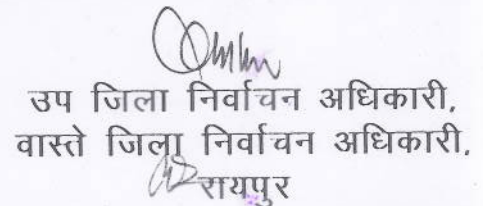 उप जिला निर्वाचन अधिकारी,
वास्ते जिला निर्वाचन अधिकारी,
रायपुर